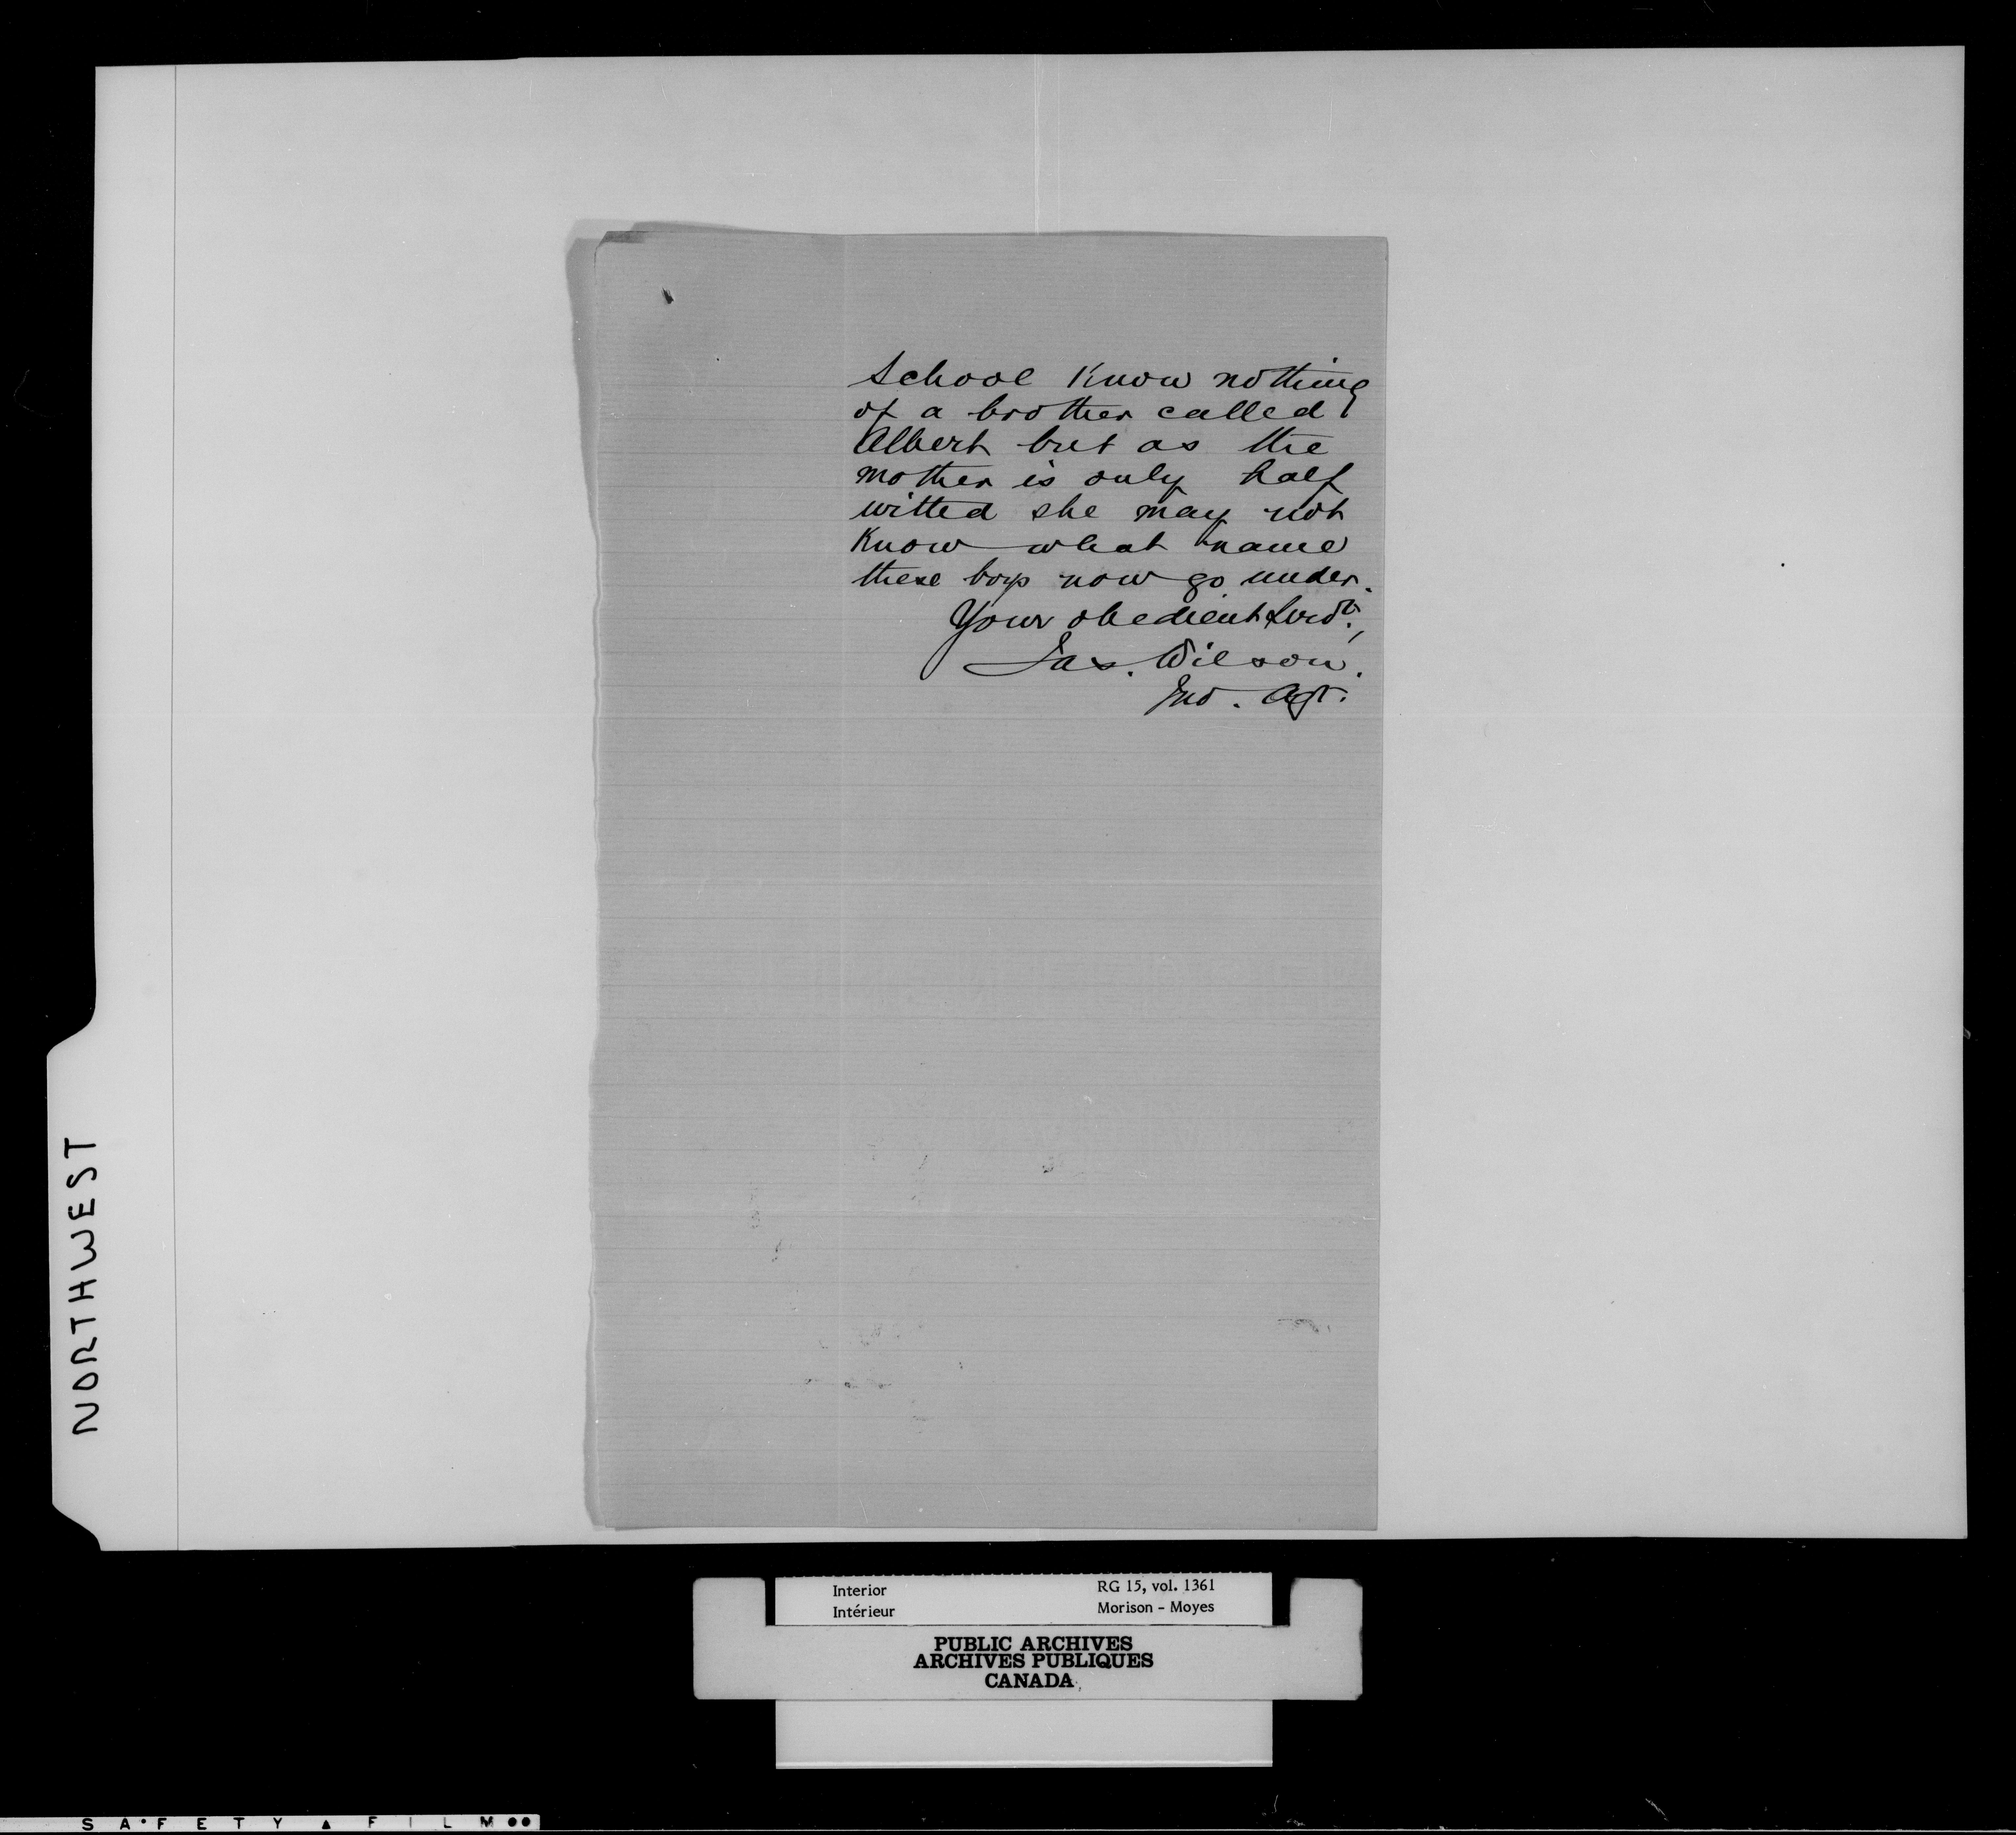 School know nothing
of a brother called
Albert but as the
mother is only half
witted she may not
know what name
these boys now go under.
Your obedient Servt.,
Jas. Wilson.
Ind. Agt.
NORTHWEST
Interior
Intérieur
RG 15, vol. 1361
Morison - Moyes
PUBLIC ARCHIVES
ARCHIVES PUBLIQUES
CANADA
SAFETY FILM